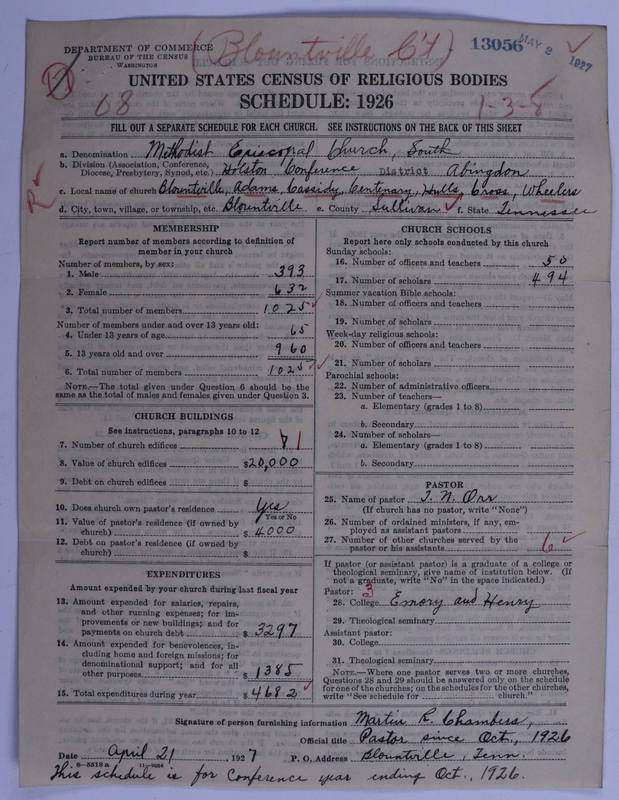 DEPARTMENT OF COMMERCE
BUREAU OF THE CENSUS
WASHINGTON
(Blountville C't)
13056 MAY 2 1927
D
UNITED STATES CENSUS OF RELIGIOUS BODIES
68
SCHEDULE: 1926
1-3-8
FILL OUT A SEPARATE SCHEDULE FOR EACH CHURCH. SEE INSTRUCTIONS ON THE BACK OF THIS SHEET
a. Denomination Methodist Episcopal Church, South
b. Division (Association, Conference, Diocese, Presbytery, Synod, etc.) Holston Conference District Abingdon
R
c. Local name of church Blountville, Adams, Cassidy, Centenary, Hulls, Cross, Wheelers
d. City, town, village, or township, etc. Blountville e. County Sullivan f. State Tennessee
MEMBERSHIP
Report number of members according to definition of
member in your church
Number of members, by sex:
1. Male 393
2. Female 632
3. Total number of members 1025
Number of members under and over 13 years old:
4. Under 13 years of age 65
5. 13 years old and over 960
6. Total number of members 1025
NOTE.—The total given under Question 6 should be the
same as the total of males and females given under Question 3.
CHURCH BUILDINGS
See instructions, paragraphs 10 to 12
7. Number of church edifices 7 1
8. Value of church edifices $20,000
9. Debt on church edifices $
10. Does church own pastor's residence Yes
Yes or No
11. Value of pastor's residence (if owned by
church) $ 4000
12. Debt on pastor's residence (if owned by
church) $
EXPENDITURES
Amount expended by your church during last fiscal year
13. Amount expended for salaries, repairs,
and other running expenses; for im-
provements or new buildings; and for
payments on church debt $ 3297
14. Amount expended for benevolences, in-
cluding home and foreign missions; for
denominational support; and for all
other purposes $ 1385
15. Total expenditures during year $ 4682
CHURCH SCHOOLS
Report here only schools conducted by this church
Sunday schools:
16. Number of officers and teachers 50
17. Number of scholars 494
Summer vacation Bible schools:
18. Number of officers and teachers
19. Number of scholars
Week-day religious schools:
20. Number of officers and teachers
21. Number of scholars
Parochial schools:
22. Number of administrative officers
23. Number of teachers—
a. Elementary (grades 1 to 8)
b. Secondary
24. Number of scholars—
a. Elementary (grades 1 to 8)
b. Secondary
PASTOR
25. Name of pastor T. N. Orr
(If church has no pastor, write "None")
26. Number of ordained ministers, if any, em-
ployed as assistant pastors
27. Number of other churches served by the
pastor or his assistants 6
If pastor (or assistant pastor) is a graduate of a college or
theological seminary, give name of institution below. (If
not a graduate, write "No" in the space indicated.)
Pastor: 3
28. College Emory and Henry
29. Theological seminary
Assistant pastor:
30. College
31. Theological seminary
NOTE.—Where one pastor serves two or more churches,
Questions 28 and 29 should be answered only on the schedule
for one of the churches; on the schedules for the other churches,
write "See schedule for church."
Signature of person furnishing information Martin R. Chambers,
Official title Pastor since Oct., 1926
Date April 21, 1927 P. O. Address Blountville, Tenn.
8—5518a 11—9054
This schedule is for Conference year ending Oct., 1926.